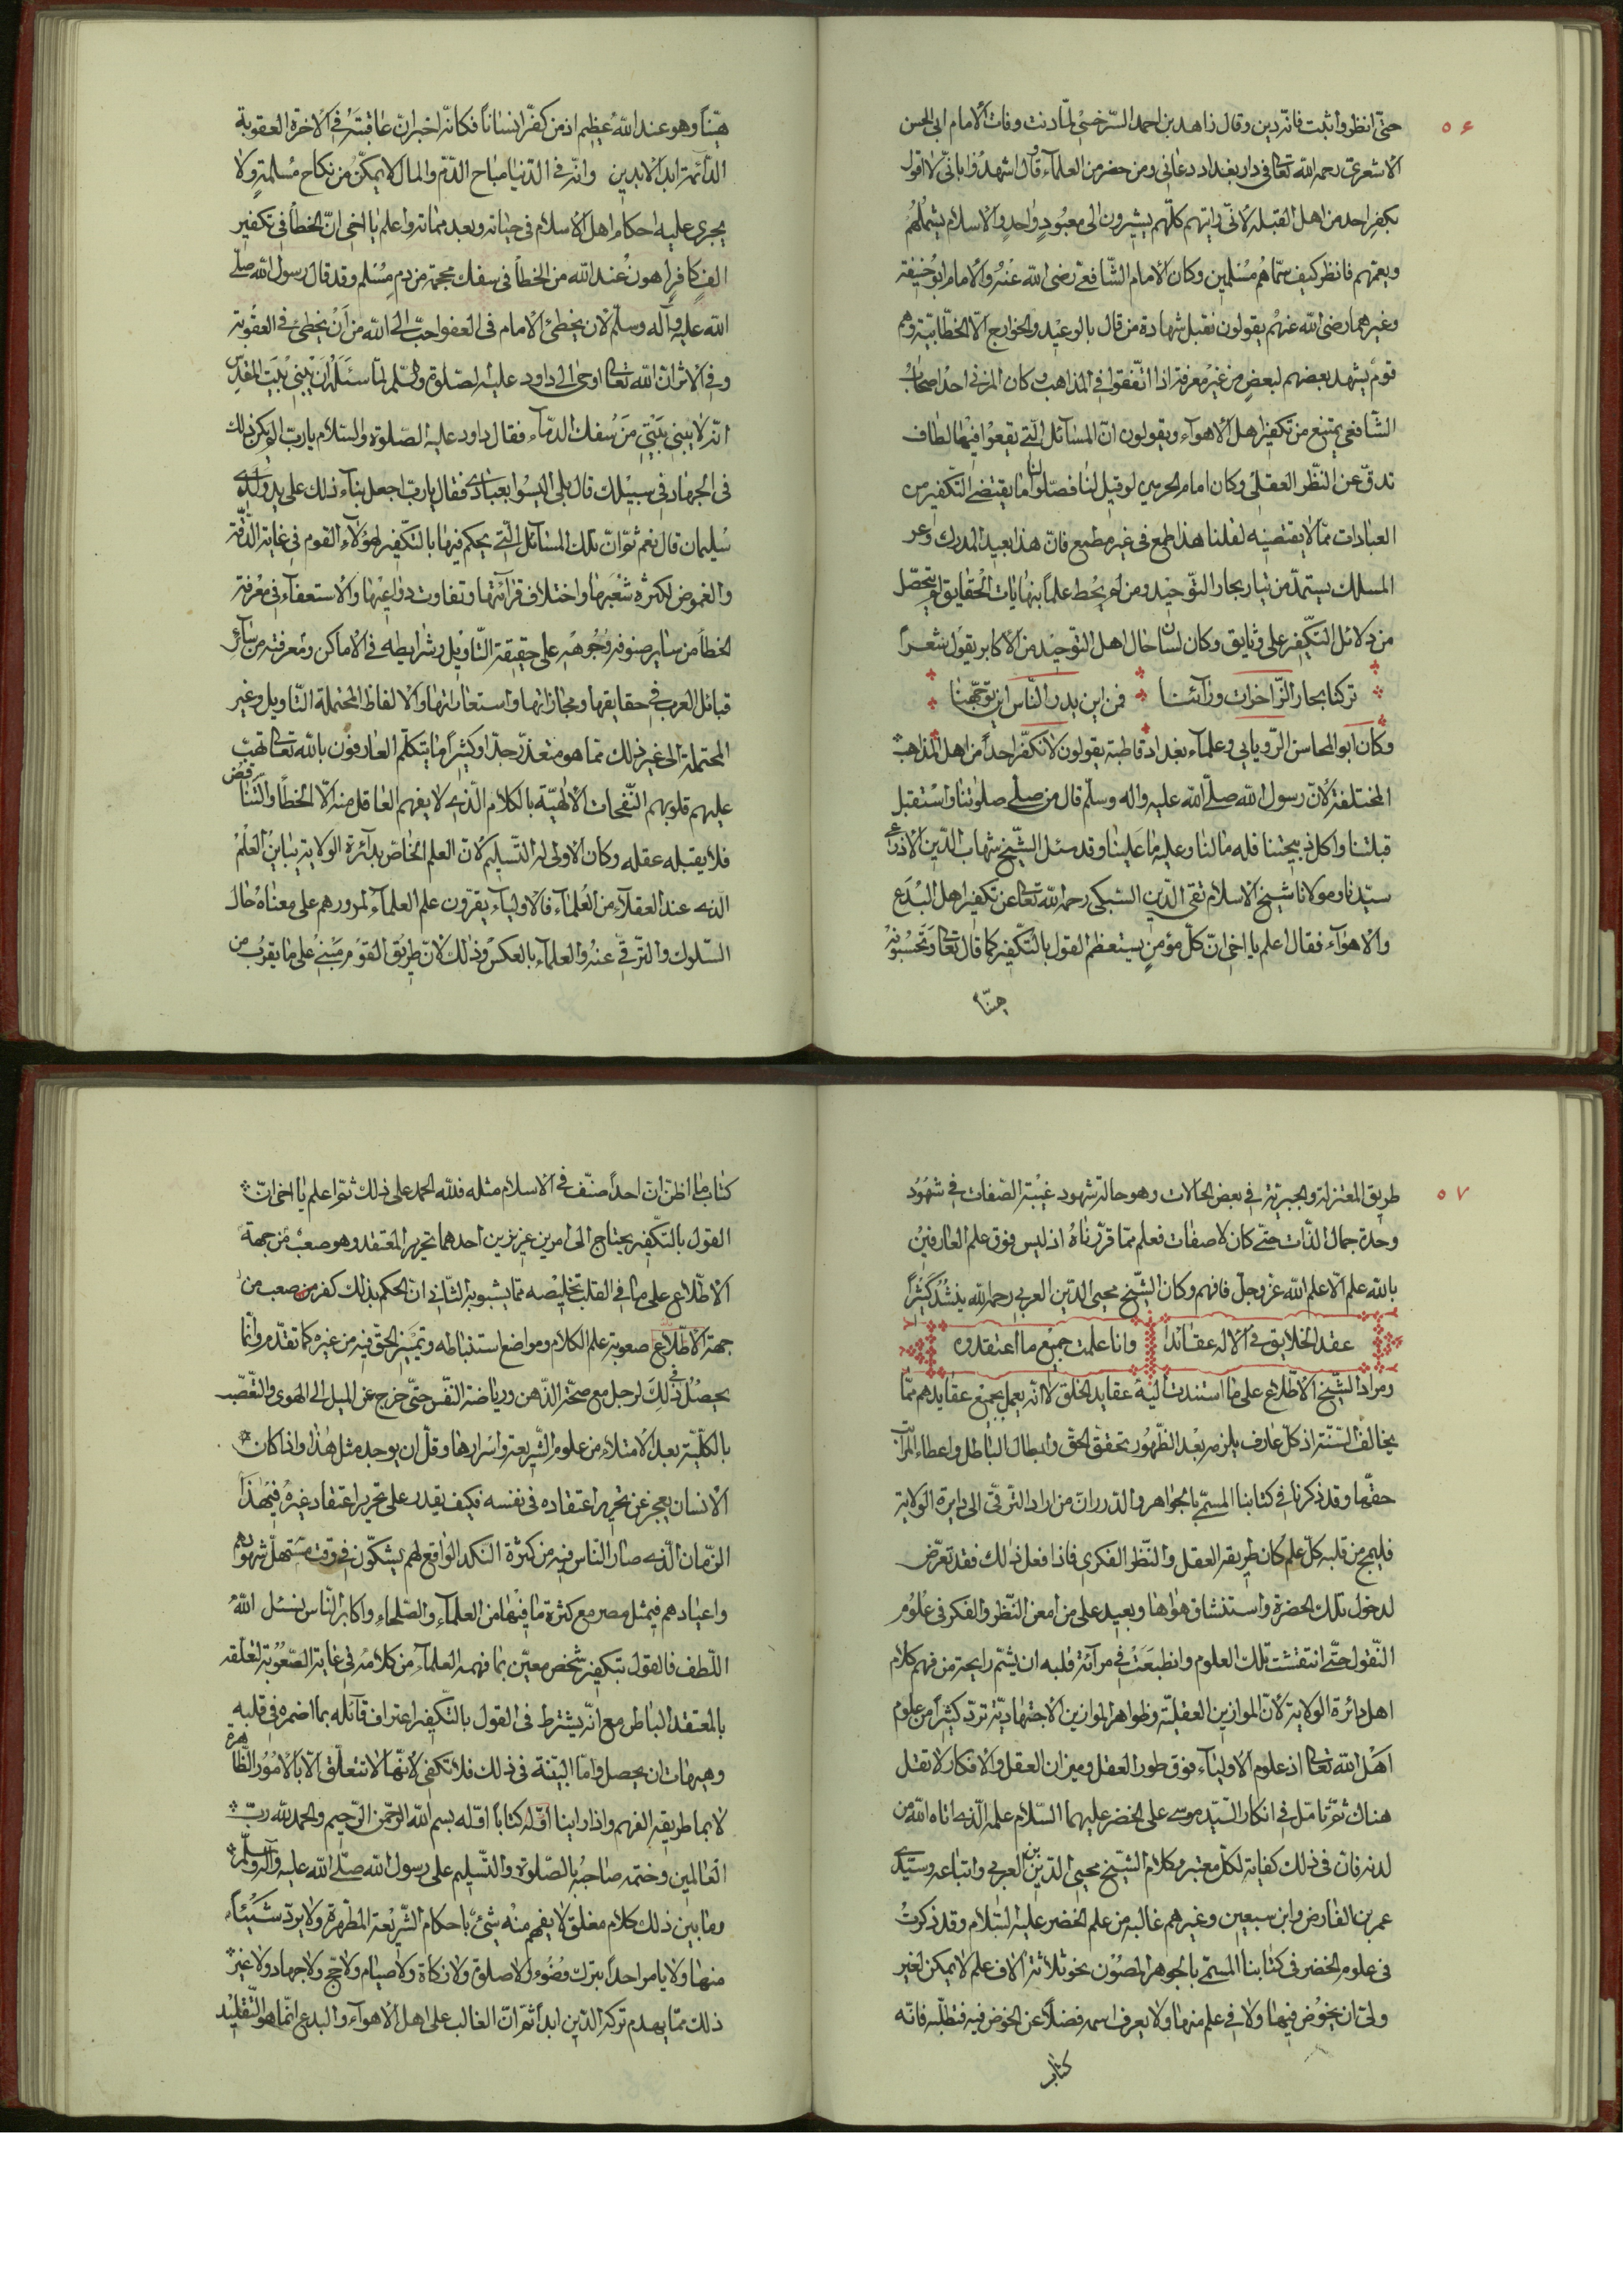 ٥٦
حتّى انظر واثبت فانّه دين وقال زاهد بن احمد السّرخسىّ لمّا دنت وفات الامام ابى الحسن
الاشعرى رحمه الله تعالى فى دار بغداد دعانى ومن حضر من العلماء وقال اشهدوا بانّى لا اقول
بكفر احد من اهل القبلة لانّى رايتهم كلّهم يشيرون الى معبود واحد والاسلام يشملهم
ويعمّهم فانظر كيف سمّاهم مسلمين وكان الامام الشّافعى رضى الله عنه والامام ابو حنيفة
وغيرهما رضى الله عنهم يقولون نقبل شهادة من قال بالوعيد والخوارج الّا الخطّابيّة وهم
قوم يشهد بعضهم لبعض من غير معرفة اذا اتّفقوا فى المذاهب وكان المزنى احد اصحاب
الشافعى يمتنع من تكفير اهل الاهواء ويقولون انّ المسائل الّتى يقعوا فيها لطاف
تدقّ عن النّظر العقلى وكان امام الحرمين لو قيل لنا فصّلوا لنا ما يقتضى التّكفير من
العبادات ممّا لا يقتضيه لقلنا هذا طمع فى غير مطمع فانّ هذا بعيد المدرك وعر
المسلك يستمدّ من تيّار بحار التّوحيد ومن لم يحط علماً بنهايات الحقايق لم يتحصّل
من دلائل التكّفير على وثايق وكان لسان حال اهل التّوحيد من الاكابر يقول شعراً
تركنا بحار الزّاخرات ورآئنا فمن اين يدر النّاس اين توجّهنا
وكان ابو المحاسن الرّويانى وعلماء بغداد قاطبة يقولون لا نكفّر احداً من اهل المذاهب
المختلفة لانّ رسول الله صلّى الله عليه واله وسلّم قال من صلّى صلوتنا واستقبل
قبلتنا واكل ذبيحتنا فله ما لنا وعليه ما علينا وقد سئل الشّيخ شهاب الدّين الاذرعى
سيّدنا ومولانا شيخ الاسلام تقى الدّين السّبكى رحمه الله تعالى عن تكفير اهل البدع
والاهواء فقال اعلم يا اخى انّ كلّ مؤمن يستعظم القول بالتكّفير كما قال تعالى وتحسبونه
هيّناً
هيّناً وهو عند الله عظيم اذ من كفّر انساناً فكانّه اخبر انّ عاقبته فى الاخرة العقوبة
الدّائمة ابد الابدين وانّه فى الدّنيا مباح الدّم والمال لا يمكّن من نكاح مسلمة ولا
يجرى عليه احكام اهل الاسلام فى حياته وبعد مماته واعلم يا اخى انّ الخطأ فى تكفير
الف كافر اهون عند الله من الخطأ فى سفك محجمة من دم مسلم وقد قال رسول الله صلّى
الله عليه وآله وسلّم لان يخطئ الامام فى العفو احبّ الى الله من أن يخطئ فى العقوبة
وفى الاثر انّ الله تعالى اوحى الى داود عليه الصّلوة والسّلم لمّا سئله ان يبنى بيت المقدّس
انّه لا يبنى بيتى من سفك الدماء فقال داود عليه الصّلوة والسّلام يا ربّ الم يكن ذلك
فى الجهاد فى سبيلك قال بلى اليسوا بعبادى فقال يا ربّ اجعل بناء ذلك على يد ولدى
سليمان قال نعم ثمّ انّ تلك المسائل الّتى يحكم فيها بالتكّفير لهؤلاء القوم فى غاية الدّقّة
والغموض لكثرة شعبها واختلاف قرآئنها وتفاوت دواعيها والاستعفاء فى معرفة
الخطأ من ساير صنوفه وجوهه على حقيقة التّاويل وشرايطه فى الاماكن ومعرفته من سائر
قبائل العرب فى حقايقها ومجازاتها واستعاراتها والالفاظ المحتملة التّاويل وغير
المحتملة الى غير ذلك ممّا هو متعذّر جدّا وكثيراً ما يتكلّم العارفون بالله تعالى تهبّ
عليهم قلوبهم النّفحات الالهيّة بالكلام الّذى لا يفهم العاقل منه الّا الخطأ والتّناقض
فلا يقبله عقله وكان الاولى له التّسليم لانّ العلم الخاصّ بدآئرة الولاية يباين العلم
الذى عند العقلاء من العلماء فالاولياء يقرّون علم العلماء لمرورهم على معناه حال
السّلوك والترقّى عنه والعلماء بالعكس وذلك لانّ طريق القوم مبنىّ على ما يقرب من
٥٧
طريق المعتزلة والجبريّة فى بعض الحالات وهو حالة شهود غيبة الصّفات فى شهود
وحدة جمال الذّات حتّى كان لا صفات فعلم ممّا قرّرناه اذ ليس فوق علم العارفين
بالله علم الّا علم الله عزّ وجلّ فافهم وكان الشّيخ محيى الدّين العربى رحمه الله ينشد كثيراً
عقد الخلايق فى الاله عقائدا وانا علمت جميع ما اعتقدوه
ومراد الشّيخ الاطّلاع على ما استندت اليه عقايد الخلق لا انّه يعمل بجميع عقايدهم ممّا
يخالف السّنّة اذ كلّ عارف يلزمه بعد الظّهور تحقّق الحقّ وابطال الباطل واعطاء المراتب
حقّها وقد ذكرنا فى كتابنا المسمّى بالجواهر والدّرر انّ من اراد التّرقّى الى دايرة الولاية
فليمح من قلبه كلّ علم كان طريقه العقل والنّظر الفكرى فاذا فعل ذلك فقد تعرّض
لدخول تلك الحضرة واستنشاق هواها وبعيد على من امعن النّظر والفكر فى علوم
النّقول حتّى انتقشت تلك العلوم وانطبعت فى مرآئة قلبه ان يشتم رايحة من فهم كلام
اهل دائرة الولاية لانّ الموازين العقليّة وظواهر الموازين الاجتهاديّة تردّ كثيراً من علوم
اهل الله تعالى اذ علوم الاولياء فوق طور العقل وميزان العقل والافكار لا تقبل
هناك ثمّ تامّل فى انكار السّيّد موسى على الخضر عليهما السّلام علمه الّذى اتاه الله من
لدنه فانّ فى ذلك كفاية لكلّ معتبر وكلام الشّيخ محيى الدّين بن العربى واتباعه وسيّدى
عمر بن الفارض وابن سبعين وغيرهم غالبه من علم الخضر عليه السّلام وقد ذكرت
فى علوم الخضر فى كتابنا المسمّى بالجوهر المصون نحو ثلاثة الاف علم لا يمكن لغير
ولىّ ان يخوض فيها ولا فى علم منها ولا يعرف اسمه فضلاً عن الخوض فيه فتطلّبه فانّه
كتاب
كتاب ما اظنّ انّ احداً صنّف فى الاسلام مثله فللّه الحمد على ذلك ثمّ اعلم يا اخى انّ
القول بالتكّفير يحتاج الى امرين عزيزين احدهما تحرير المعتقد وهو صعب من جهة
الاطّلاع على ما فى القلب تخليصه ممّا يشوبه الثّانى انّ الحكم بذلك كفر صعب من
جهة الاطّلاع صعوبة علم الكلام ومواضع استنباطه وتمييز الحقّ فيه من غيره كما تقدّم وانّما
يحصل ذلك لرجل مع صحّة الذّهن ورياضة النّفس حتّى خرج عن الميل الى الهوى والتّعصّب
بالكلّيّة بعد الامتلاء من علوم الشّريعة واسرارها وقلّ ان يوجد مثل هذا واذا كان
الانسان يعجز عن تحرير اعتقاده فى نفسه فكيف يقدر على تحرير اعتقاد غيره فى هذا
الزّمان الّذى صار النّاس فيه من كثرة النّكد الواقع لهم يشكّون فى وقت مستهلّ شهورهم
واعيادهم فى مثل مصر مع كثرة ما فيها من العلماء والصّلحاء واكابر النّاس نسئل الله
اللّطف فالقول بتكفير شخص معيّن بما فهمه العلماء من كلامه فى غاية الصّعوبة لتعلّقه
بالمعتقد الباطن مع انّه يشترط فى القول بالتّكفير اعتراف قآئله بما اضمره فى قلبه
وهيهات ان يحصل وامّا البيّنة فى ذلك فلا تكفى لانّها لا تتعلّق الّا بالامور الظّاهرة
لا بما طريقه الفهم واذا راينا كتاباً اوّله بسم الله الرّحمن الرّحيم والحمد لله ربّ
العالمين وختمه صاحبه بالصّلوة والتّسليم على رسول الله صلّى الله عليه وآله وسلّم
وما بين ذلك كلام مغلق لا يفهم منه شئ باحكام الشّريعة المطّهرة ولا يردّ شيئاً
منها ولا يامر احداً بترك وضوء ولا صلوة ولا زكاة ولا صيام ولا حجّ ولا جهاد ولا غير
ذلك ممّا يهدم تركه الدّين ابداً ثمّ انّ الغالب على اهل الاهواء والبدع انّما هو التّقليد